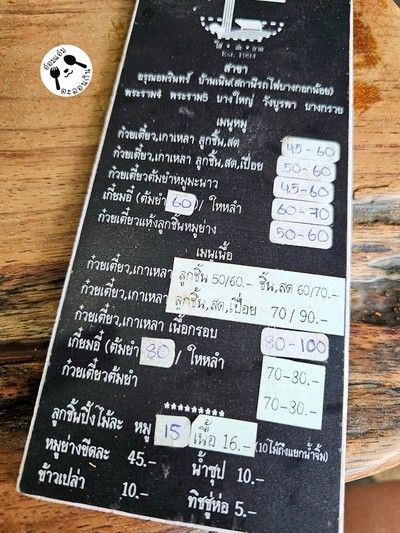 อ้อมแอ้ม
ตะลอนกิน
ใส่ • ล่ะ • ถาด
Est. 1991
สาขา
อรุณอมรินทร์ บ้านเนิน(สถานีรถไฟบางกอกน้อย)
พระราม4 พระราม5 บางใหญ่ วังบูรพา บางกรวย
เมนูหมู
ก๋วยเตี๋ยว,เกาเหลา ลูกชิ้น,สด 45-60
ก๋วยเตี๋ยว,เกาเหลา ลูกชิ้น,สด,เปื่อย 50-60
ก๋วยเตี๋ยวต้มยำหมูมะนาว 45-60
เกี้ยมอี๋ (ต้มยำ 60 / ใหหลำ 60-70
ก๋วยเตี๋ยวแห้งลูกชิ้นหมูย่าง 50-60
เมนูเนื้อ
ก๋วยเตี๋ยว,เกาเหลา ลูกชิ้น 50/60.- ชิ้น,สด 60/70.-
ก๋วยเตี๋ยว,เกาเหลา ลูกชิ้น,สด,เปื่อย 70/90.-
ก๋วยเตี๋ยว,เกาเหลา เนื้อกรอบ 80-100
เกี้ยมอี๋ (ต้มยำ 80 / ใหหลำ 70-30.-
ก๋วยเตี๋ยวต้มยำ 70-30.-
*********
ลูกชิ้นปิ้งไม้ละ หมู 15 เนื้อ 16.- (10ไม้ถึงแยกน้ำจิ้ม)
หมูย่างขีดละ 45.- น้ำซุป 10.-
ข้าวเปล่า 10.- ทิชชู่ห่อ 5.-